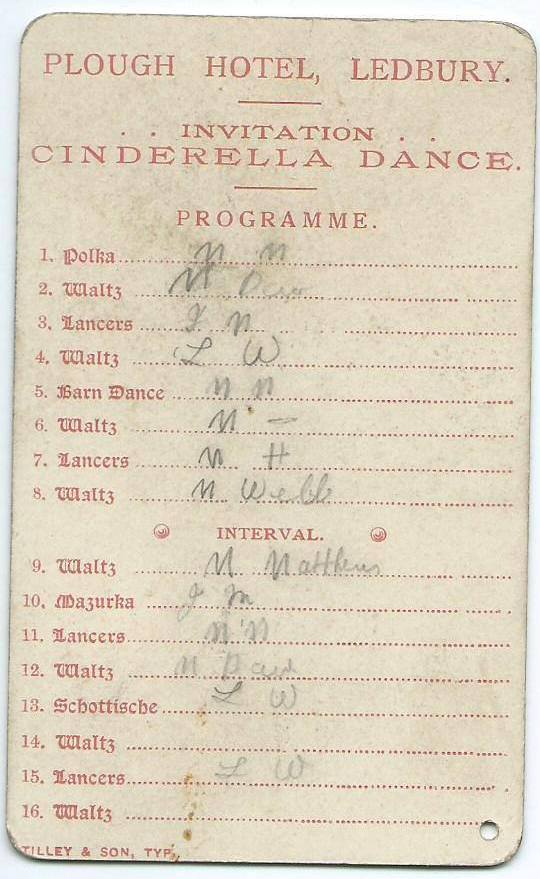 PLOUGH HOTEL, LEDBURY.
. . INVITATION . .
CINDERELLA DANCE.
PROGRAMME.
1. Polka
2. Waltz
3. Lancers
4. Waltz L W
5. Barn Dance
6. Waltz
7. Lancers H
8. Waltz
INTERVAL.
9. Waltz Matthews
10. Mazurka
11. Lancers
12. Waltz
13. Schottische L W
14. Waltz
15. Lancers L W
16. Waltz
TILLEY & SON, TYP.